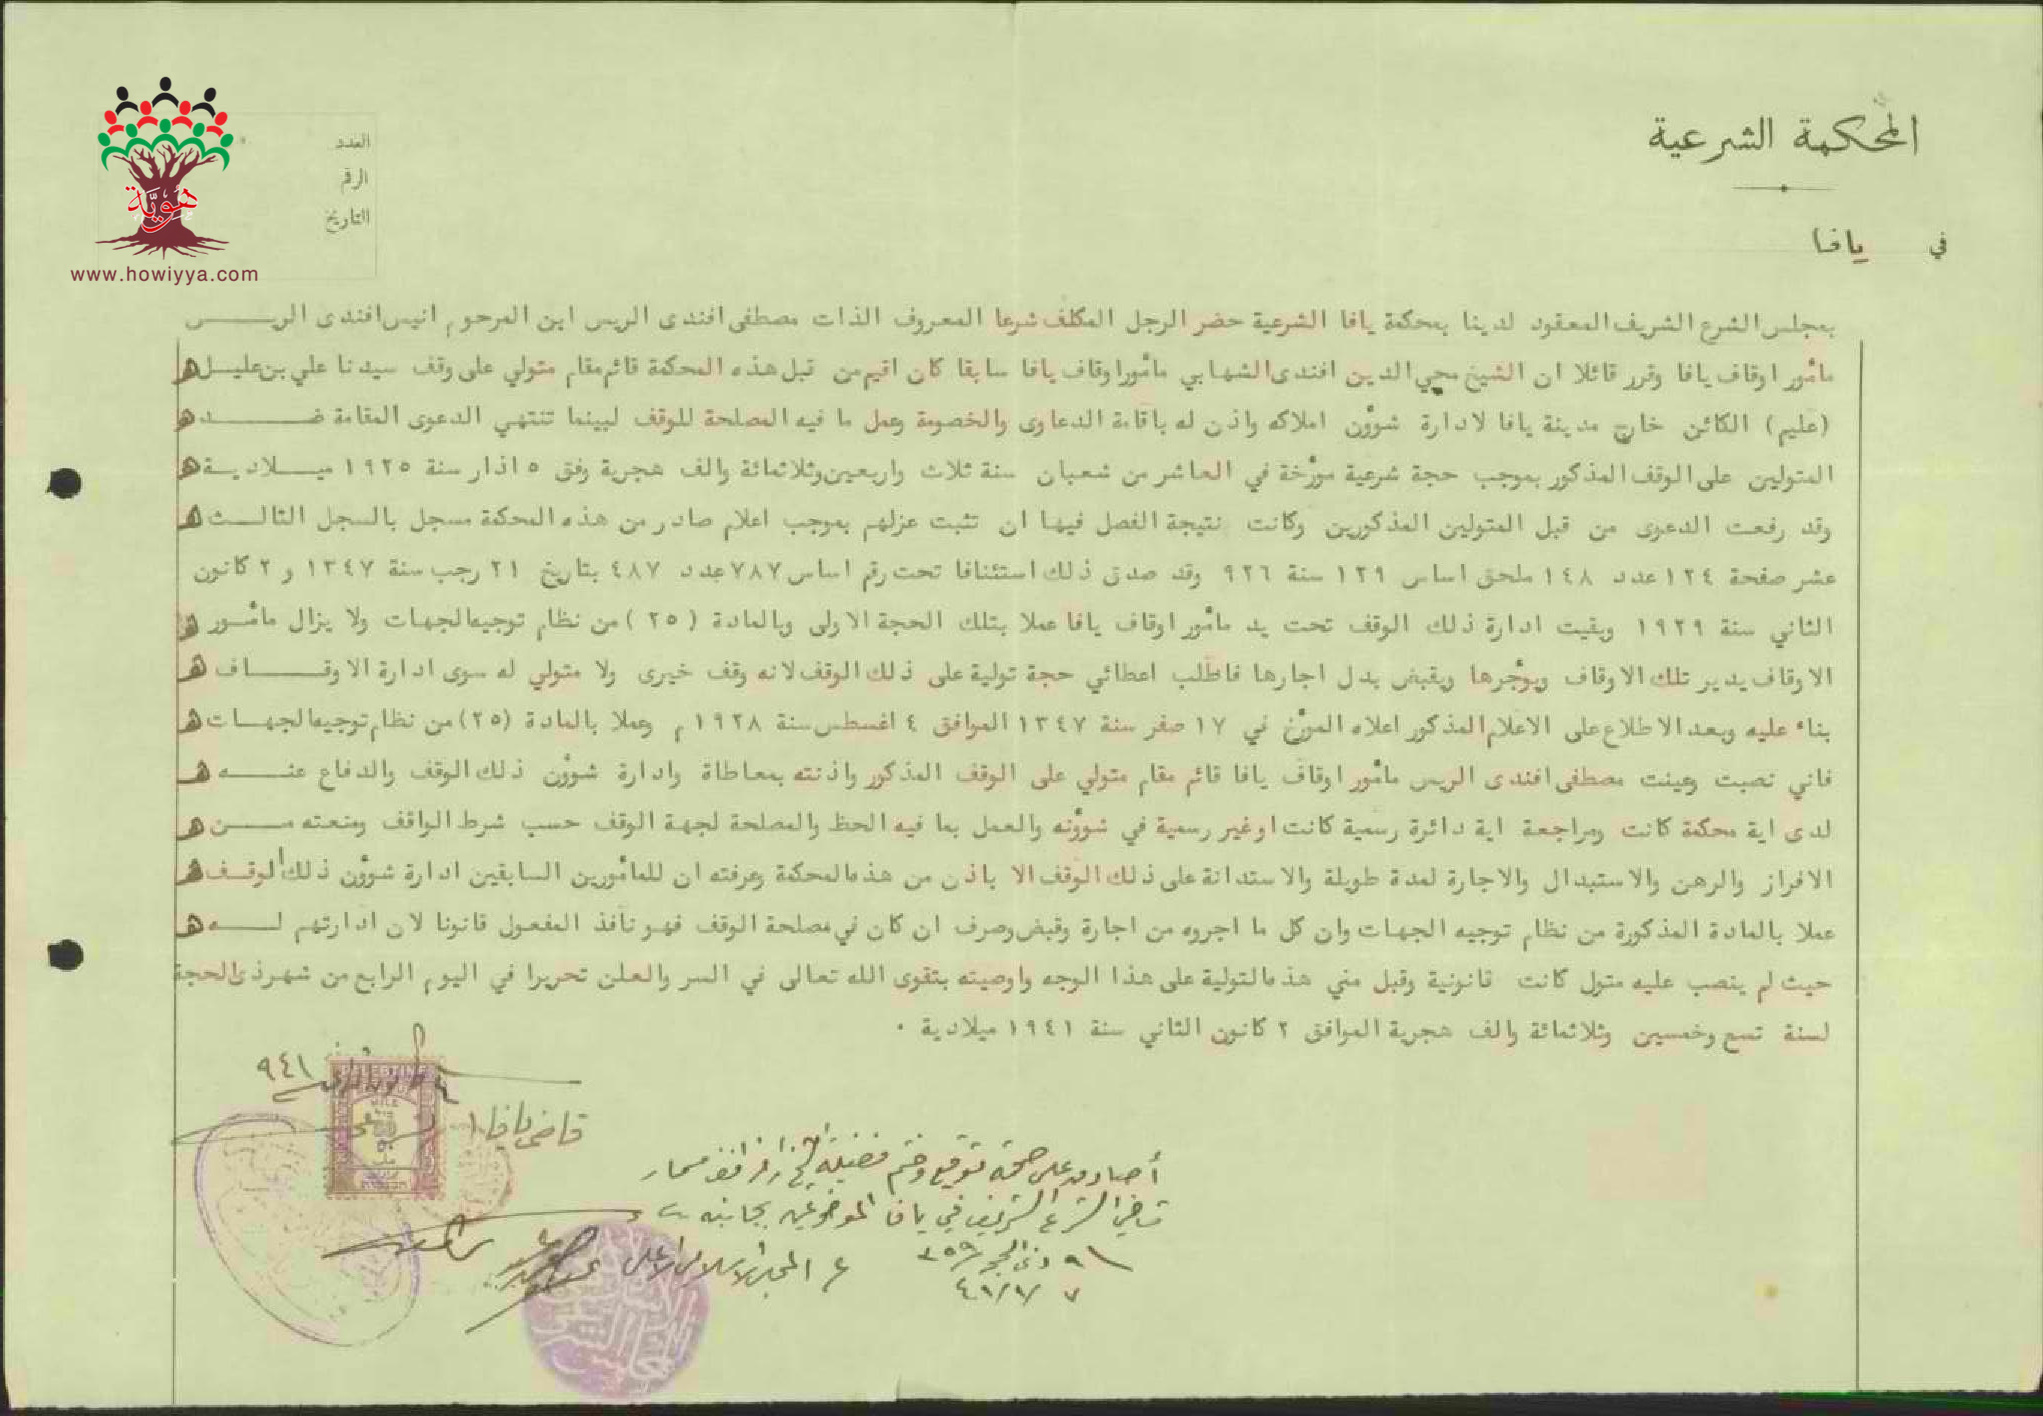 المحكمة الشرعية
في يافا
العدد
الرقم
التاريخ
هويّة
www.howiyya.com
بمجلس الشرع الشريف المعقود لدينا بمحكمة يافا الشرعية حضر الرجل المكلف شرعا المعروف الذات مصطفى افندى الريس ابن المرحوم انيس افندى الريس
مأمور اوقاف يافا وقرر قائلا ان الشيخ محي الدين افندى الشهابي مأمور اوقاف يافا سابقا كان اقيم من قبل هذه المحكمة قائم مقام متولي على وقف سيدنا علي بن عليل
(عليم) الكائن خارج مدينة يافا لادارة شوؤن املاكه واذن له باقامة الدعاوى والخصومة وعمل ما فيه المصلحة للوقف لبينما تنتهي الدعوى المقامة ضد
المتولين على الوقف المذكور بموجب حجة شرعية مورّخة في العاشر من شعبان سنة ثلاث واربعين وثلاثمائة والف هجرية وفق ٥ اذار سنة ١٩٢٥ ميلادية
وقد رفعت الدعوى من قبل المتولين المذكورين وكانت نتيجة الفصل فيها ان تثبت عزلهم بموجب اعلام صادر من هذه المحكمة مسجل بالسجل الثالث
عشر صفحة ١٢٤ عدد ١٤٨ ملحق اساس ١٢٩ سنة ٩٢٦ وقد صدق ذلك استئنافا تحت رقم اساس ٧٨٧ عدد ٤٨٧ بتاريخ ٢١ رجب سنة ١٣٤٧ و ٢ كانون
الثاني سنة ١٩٢٩ وبقيت ادارة ذلك الوقف تحت يد مأمور اوقاف يافا عملا بتلك الحجة الاولى وبالمادة (٢٥) من نظام توجيه الجهات ولا يزال مأمور
الاوقاف يدير تلك الاوقاف ويؤجرها ويقبض بدل اجارها فاطلب اعطائي حجة تولية على ذلك الوقف لانه وقف خيرى ولا متولي له سوى ادارة الاوقاف
بناء عليه وبعد الاطلاع على الاعلام المذكور اعلاه المورّخ في ١٧ صفر سنة ١٣٤٧ الموافق ٤ اغسطس سنة ١٩٢٨ م وعملا بالمادة (٢٥) من نظام توجيه الجهات
فاني نصبت وعينت مصطفى افندى الريس مأمور اوقاف يافا قائم مقام متولي على الوقف المذكور واذنته بمعاطاة وادارة شوؤن ذلك الوقف والدفاع عنه
لدى اية محكمة كانت ومراجعة اية دائرة رسمية كانت او غير رسمية في شوؤنه والعمل بما فيه الحظ والمصلحة لجهة الوقف حسب شرط الواقف ومنعته من
الافراز والرهن والاستبدال والاجارة لمدة طويلة والاستدانة على ذلك الوقف الا باذن من هذه المحكمة وعرفته ان للمأمورين السابقين ادارة شوؤن ذلك الوقف
عملا بالمادة المذكورة من نظام توجيه الجهات وان كل ما اجروه من اجارة وقبض وصرف ان كان في مصلحة الوقف فهو نافذ المفعول قانونا لان ادارتهم له
حيث لم ينصب عليه متول كانت قانونية وقبل مني هذه التولية على هذا الوجه واوصيته بتقوى الله تعالى في السر والعلن تحريرا في اليوم الرابع من شهر ذى الحجة
لسنة تسع وخمسين وثلاثمائة والف هجرية الموافق ٢ كانون الثاني سنة ١٩٤١ ميلادية .
٩٤١
قاضي يافا
أصادق على صحة توقيع وختم فضيلة
قاضي الشرع الشريف في يافا الموضوعين بجانبه
٩ ذي الحجة ٣٥٩
٧/١/٤١
المجلس الاسلامي الاعلى